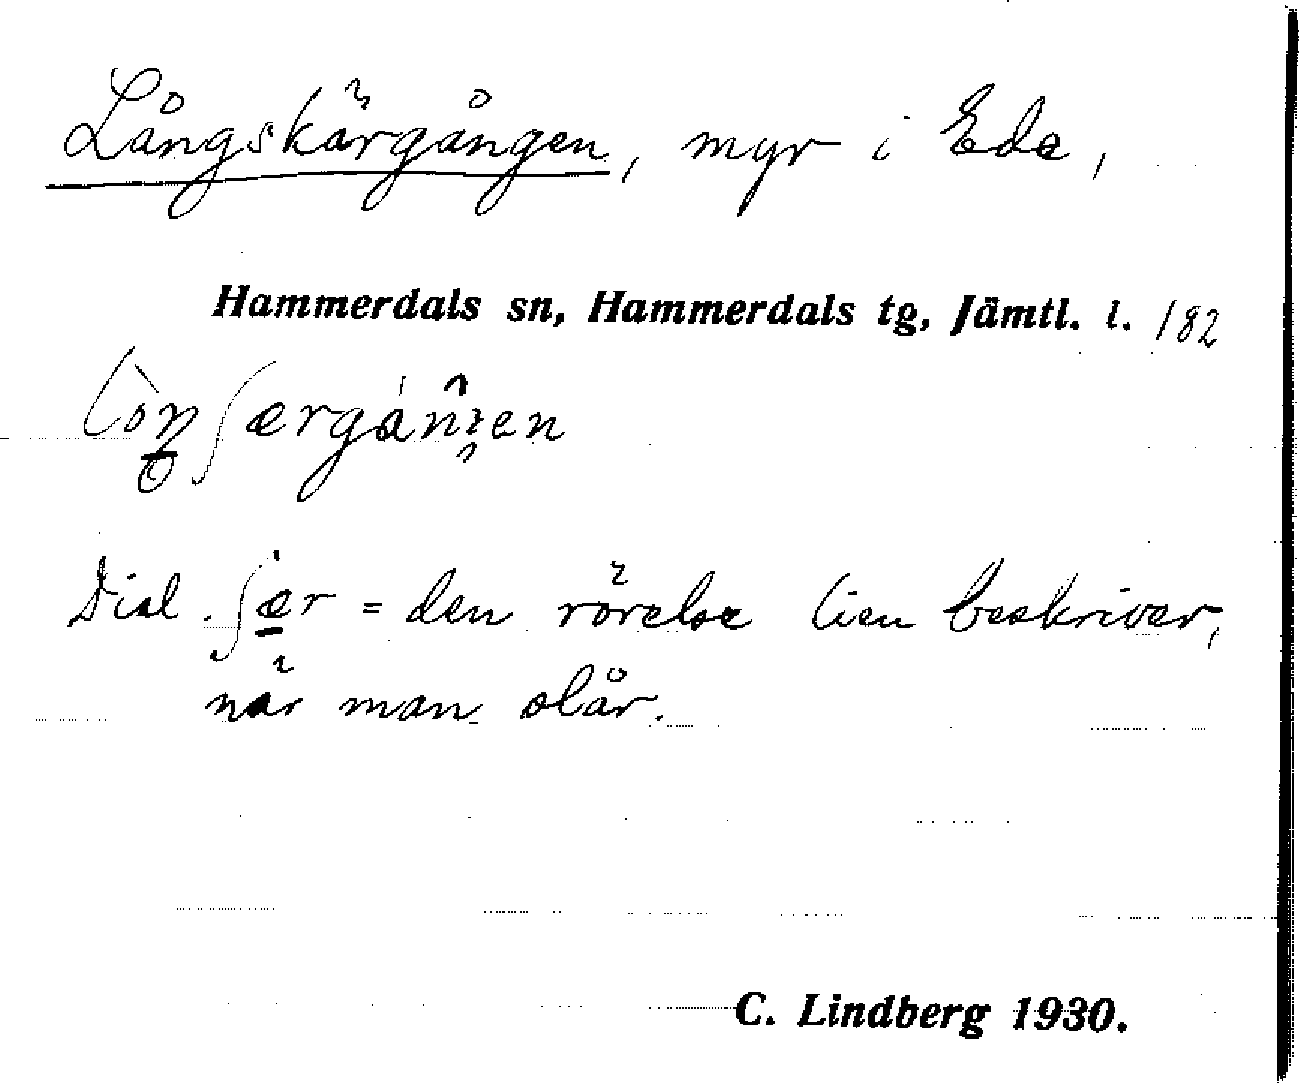 Långskärgången, myr i Ede,
Hammerdals sn, Hammerdals tg, Jämtl. l. 182
Dial. ʃær = den rörelse lien beskriver,
när man slår.
C. Lindberg 1930.